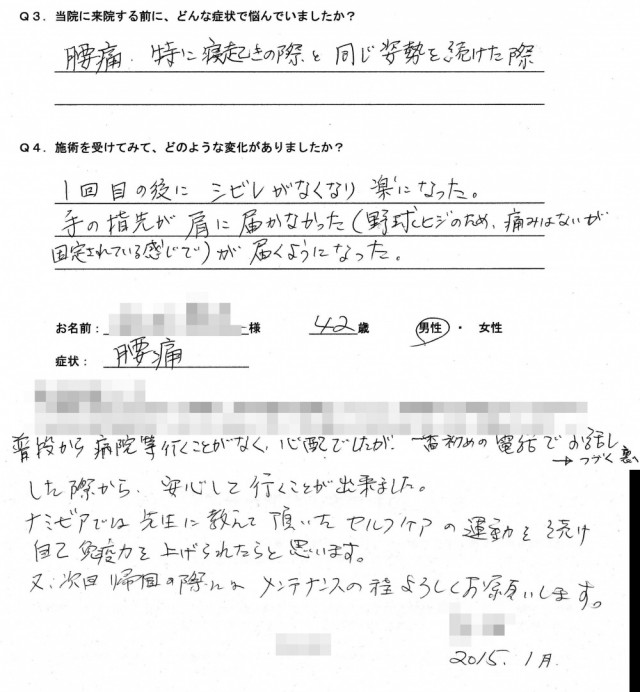 Q3. 当院に来院する前に、どんな症状で悩んでいましたか?
腰痛、特に寝起きの際と同じ姿勢を続けた際
Q4. 施術を受けてみて、どのような変化がありましたか?
1回目の後に シビレがなくなり 楽になった。
手の指先が 肩に届かなかった(野球ヒジのため、痛みはないが
固定されている感じで)が届くようになった。
お名前: 様 42歳 男性 ・ 女性
症状: 腰痛
普段から病院等行くことがなく、心配でしたが、一番初めの電話でお話し
→つづく裏へ
した際から、安心して行くことが出来ました。
ナミビアでは先生に教えて頂いたセルフケアの運動を続け
自己免疫力を上げられたらと思います。
又、次回帰国の際には メンテナンスの程よろしくお願いします。
2015. 1月